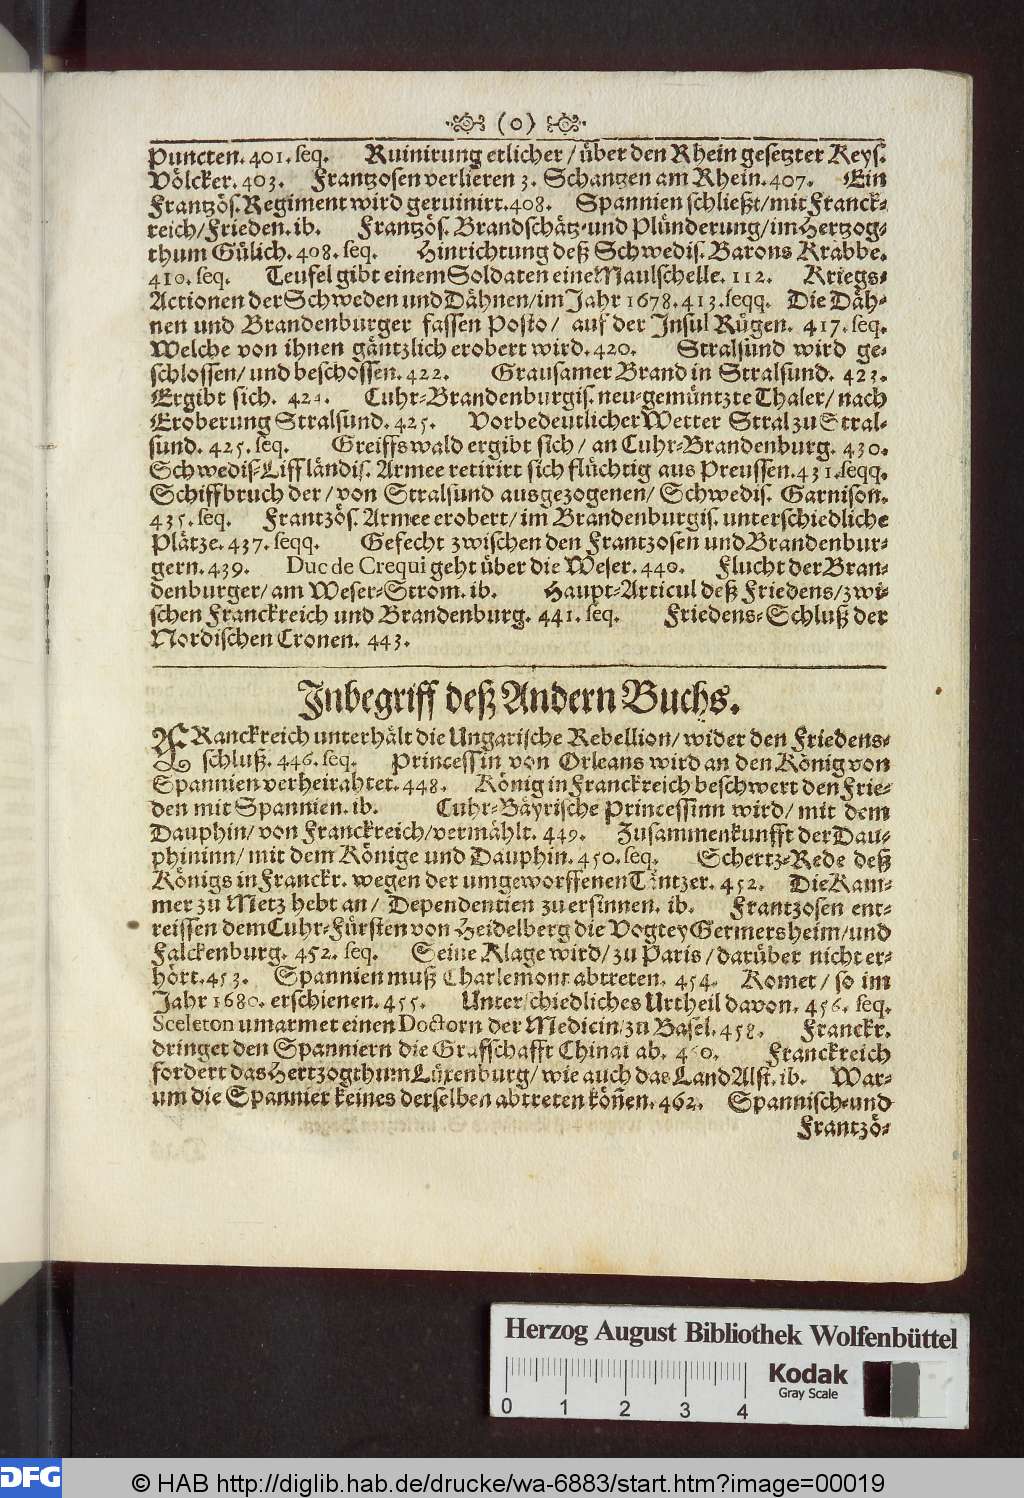 (o)
Puncten. 401. seq. Ruinirung etlicher / über den Rhein gesetzter Keys.
Völcker. 403. Frantzosen verlieren 3. Schantzen am Rhein. 407. Ein
Frantzös. Regiment wird geruinirt. 408. Spannien schließt / mit Franck-
reich / Frieden. ib. Frantzös. Brandschätz- und Plünderung / im Hertzog-
thum Gülich. 408. seq. Hinrichtung deß Schwedis. Barons Krabbe.
410. seq. Teufel gibt einem Soldaten eine Maulschelle. 112. Kriegs-
Actionen der Schweden und Dähnen / im Jahr 1678. 413. seqq. Die Däh-
nen und Brandenburger fassen Posto / auf der Insul Rügen. 417. seq.
Welche von ihnen gäntzlich erobert wird. 420. Stralsund wird ge-
schlossen / und beschossen. 422. Grausamer Brand in Stralsund. 423.
Ergibt sich. Cuhr-Brandenburgis. neu-gemüntzte Thaler / nach
Eroberung Stralsund. 425. Vorbedeutlicher Wetter Stral zu Stral-
sund. 425. seq. Greiffswald ergibt sich / an Cuhr-Brandenburg. 430.
Schwedis-Liffländis. Armee retirirt sich flüchtig aus Preussen. 431. seqq.
Schiffbruch der / von Stralsund ausgezogenen / Schwedis. Garnison.
435. seq. Frantzös. Armee erobert / im Brandenburgis. unterschiedliche
Plätze. 437. seqq. Gefecht zwischen den Frantzosen und Brandenbur-
gern. 439. Duc de Crequi geht über die Weser. 440. Flucht der Bran-
denburger / am Weser-Strom. ib. Haupt-Articul deß Friedens / zwi-
schen Franckreich und Brandenburg. 441. seq. Friedens-Schluß der
Nordischen Cronen. 443.
Inbegriff deß Andern Buchs.
FRanckreich unterhält die Ungarische Rebellion / wider den Friedens-
schluß. 446. seq. Princessin von Orleans wird an den König von
Spannien verheirahtet. 448. König in Franckreich beschwert den Frie-
den mit Spannien. ib. Cuhr-Bäyrische Princessinn wird / mit dem
Dauphin / von Franckreich / vermählt. 449. Zusammenkunfft der Dau-
phininn / mit dem Könige und Dauphin. 450. seq. Schertz-Rede deß
Königs in Franckr. wegen der umgeworffenen Täntzer. 452. Die Kam-
mer zu Metz hebt an / Dependentien zu ersinnen. ib. Frantzosen ent-
reissen dem Cuhr-Fürsten von Heidelberg die Vogtey Germersheim / und
Falckenburg. 452. seq. Seine Klage wird / zu Paris / darüber nicht er-
hört. 453. Spannien muß Charlemont abtreten. 454. Komet / so im
Jahr 1680. erschienen. 455. Unterschiedliches Urtheil davon. 456. seq.
Sceleton umarmet einen Doctorn der Medicin / zu Basel. 458. Franckr.
dringet den Spanniern die Grafschafft Chinai ab. 460. Franckreich
fordert das Hertzogthum Lüxenburg / wie auch das Land Alst. ib. War-
um die Spannier keines derselben abtreten köñen. 462. Spannisch- und
Frantzö-
Herzog August Bibliothek Wolfenbüttel
Kodak
Gray Scale
0 1 2 3 4
DFG
© HAB http://diglib.hab.de/drucke/wa-6883/start.htm?image=00019